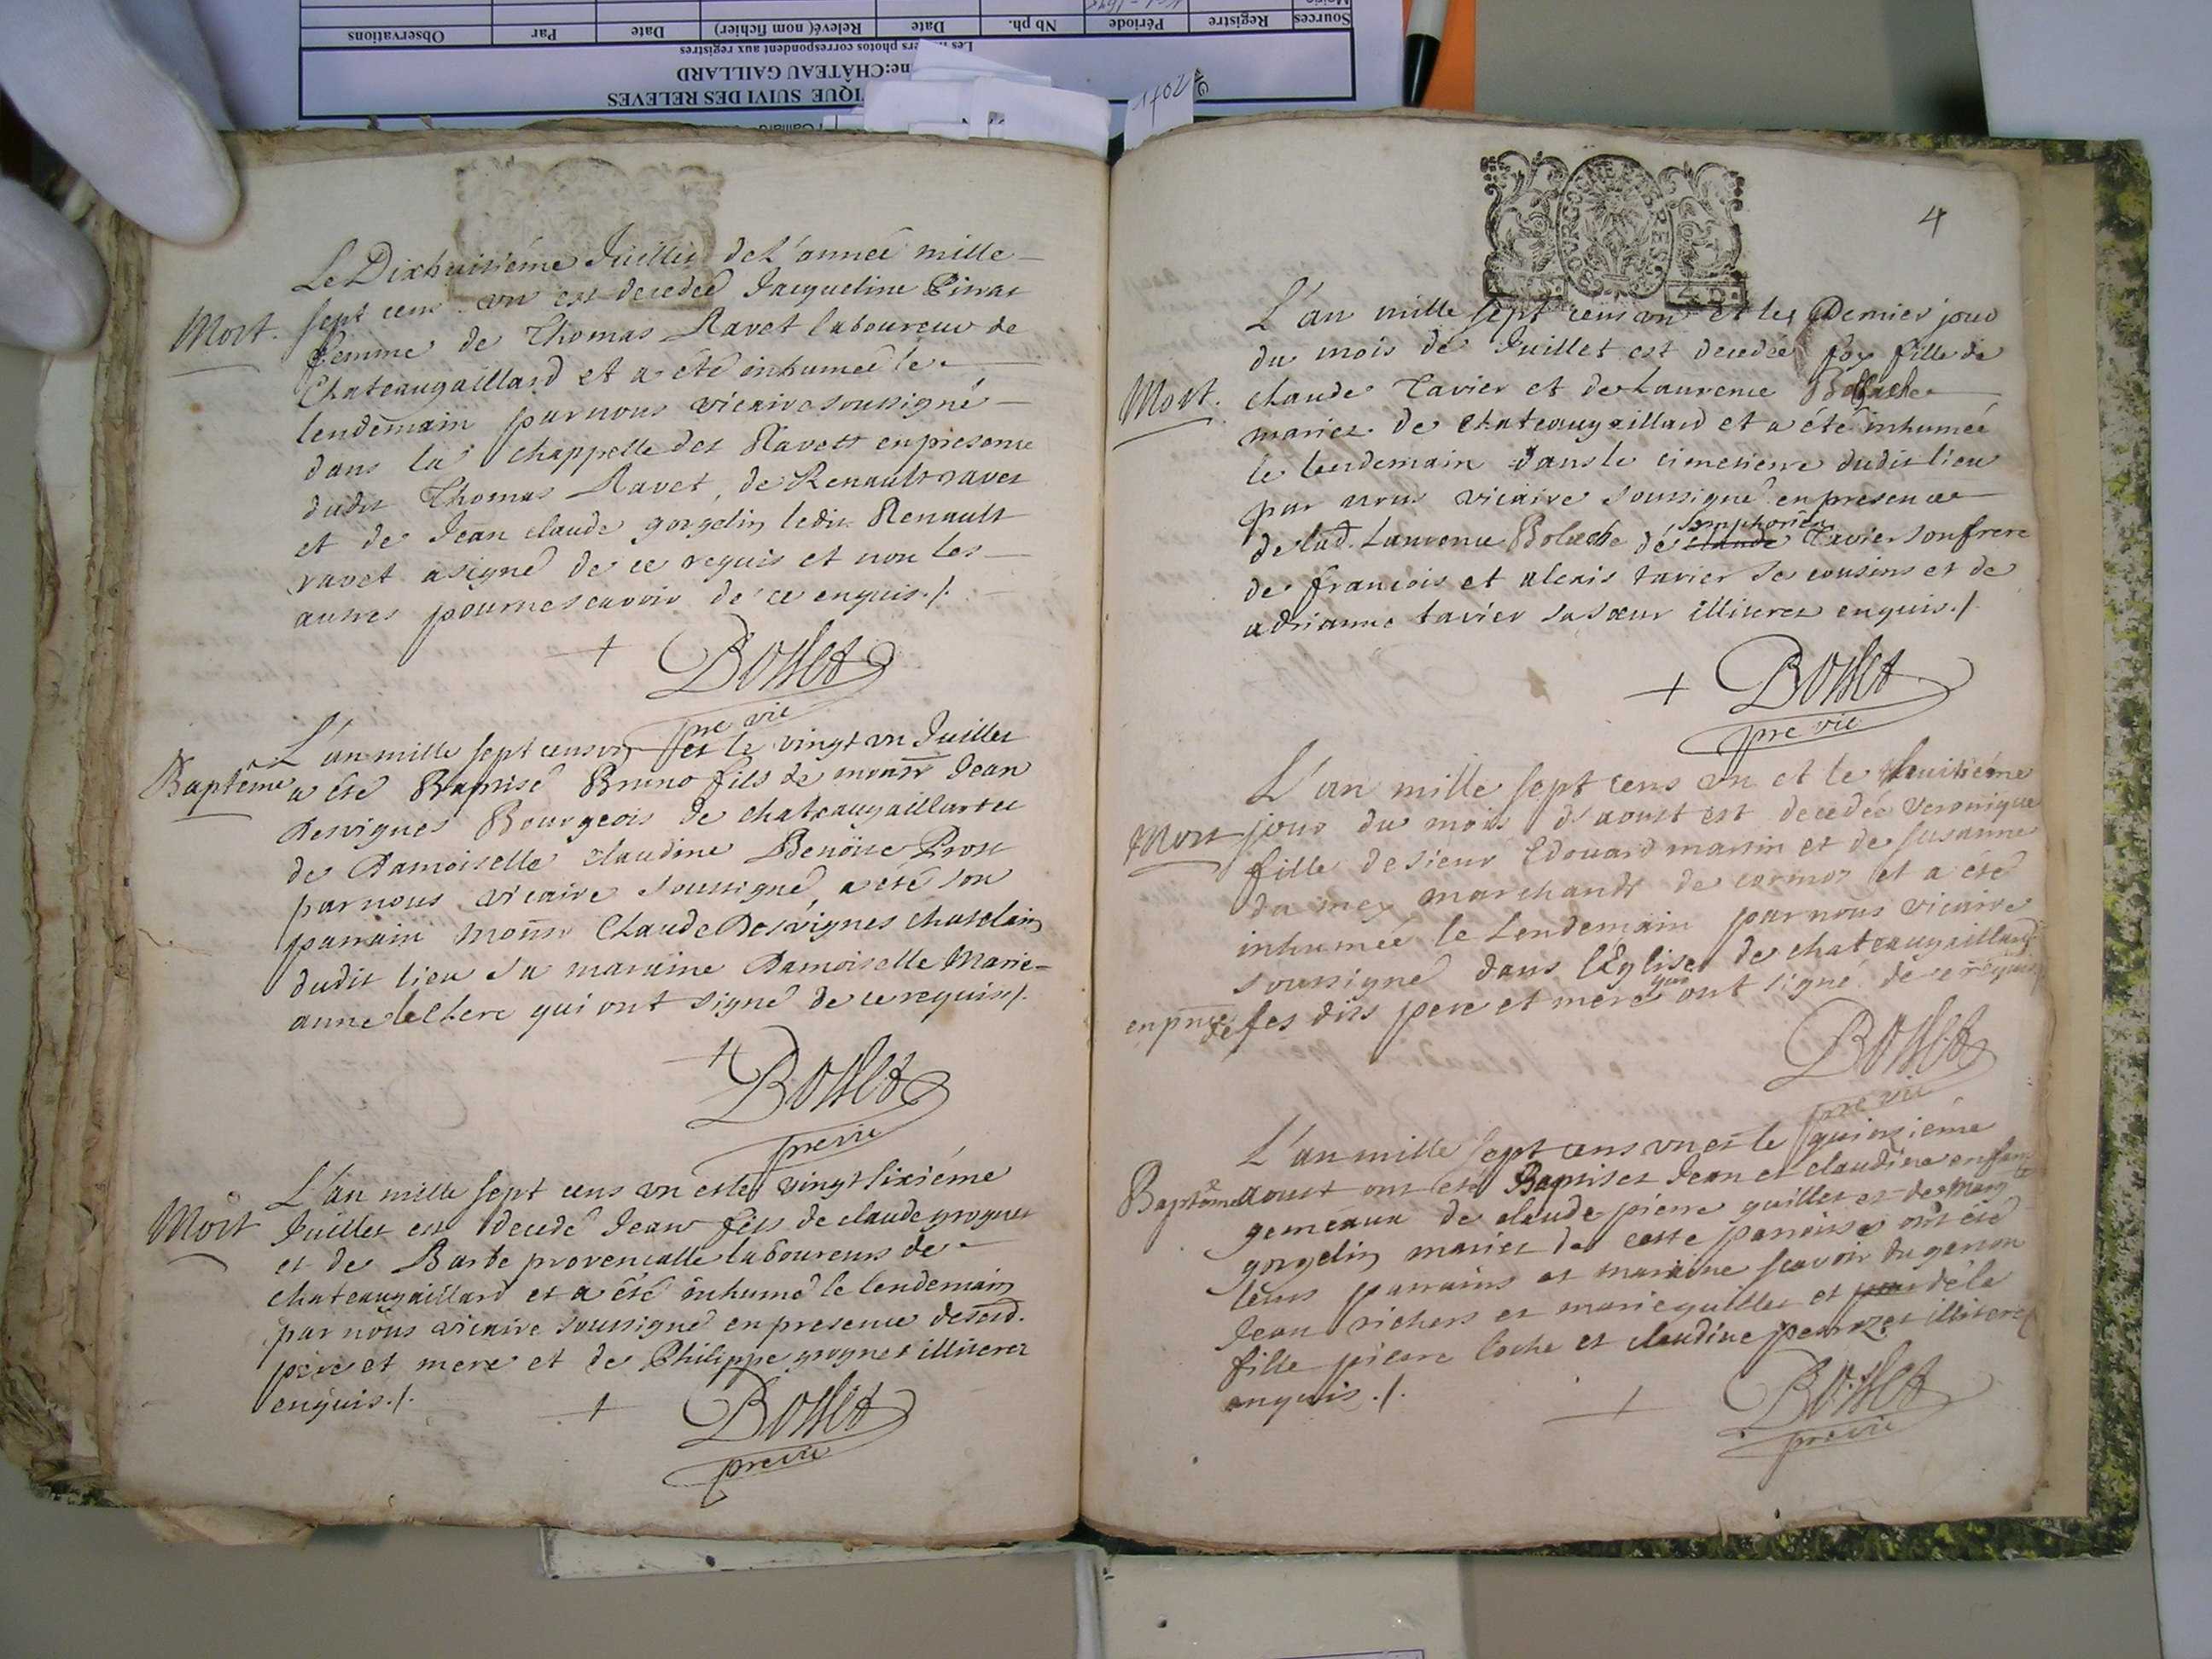 Sources Registre Période Nb ph. Date Relevé(nom fichier) Date Par Observations
photos correspondent aux registres
CHÂTEAU GAILLARD
SUIVI DES RELEVES
Mort.
Le Dixhuitiéme Juillet de L'année mille
sept cens un est decedeé Jacqueline Pinat
femme de Thomas Ravet laboureur de
Chateaugaillard et a eté inhumeé le
lendemain par nous vicaire soussigné
dans la chappelle des Ravets en presence
dudit Thomas Ravet, de Renault ravet
et de Jean claude gorgelin ledit Renault
ravet a signé de ce requis et non les
autres pour ne scavoir de ce enquis ./.
+ Bosset
pre vic
Baptême
L'an mille sept cens un et le vingt un Juillet
a été Baptisé Bruno fils de monsr Jean
Desvignes Bourgeois de chateaugaillard et
de Damoiselle claudine Benoite Prost
par nous vicaire soussigné, a eté son
parrain monsr Claude Desvignes chatelain
dudit lieu sa maraine Damoiselle Marie
anne leClere qui ont signé de ce requis ./.
Bosset
pre vic
Mort
L'an mille sept cens un et le vingt sixiéme
Juillet est decedé Jean fils de claude grognet
et de Barbe provencalle laboureurs de
chateaugaillard et a été inhumé le lendemain
par nous vicaire soussigné en presence desd.
pere et mere et de Philippe grognet illiterez
enquis ./.
+ Bosset
pre vic
4
BOURGOGNE BRESSE
Mort.
L'an mille sept cens un et le Dernier jour
du mois de Juillet est decedeé foy fille de
claude Tavier et de Laurence
mariez de Chateaugaillard et a été inhumeé
le lendemain dans le cimetierre dudit lieu
par nous vicaire soussigné en presence
de lad. Laurence de claude symphorien Tavier son frere
de francois et alexis tavier ses cousins et de
adrianne tavier sa sœur illiterez enquis ./.
+ Bosset
pre vic
Mort
L'an mille sept cens un et le huitiéme
jour du mois d'aoust est decedeé veronique
fille de sieur Edouard martin et de susanne
marchands de cormoz et a eté
inhumeé le Lendemain par nous vicaire
soussigné dans l'Eglise de chateaugaillard
en pnce de ses dits pere et mere qui ont signé de ce requis
Bosset
pre vic
Baptême
L'an mille sept cens un et le quinziéme
aoust ont eté Baptisez Jean et claudine enfans
gemeaux de claude pierre guillet et de Margte
gorgelin mariez de cette parroisse ont été
leurs parrains et maraine scavoir du garcon
Jean richers et marie guillet et pour de la
fille pierre loche et claudine illiterez
enquis ./.
+ Bosset
pre vic